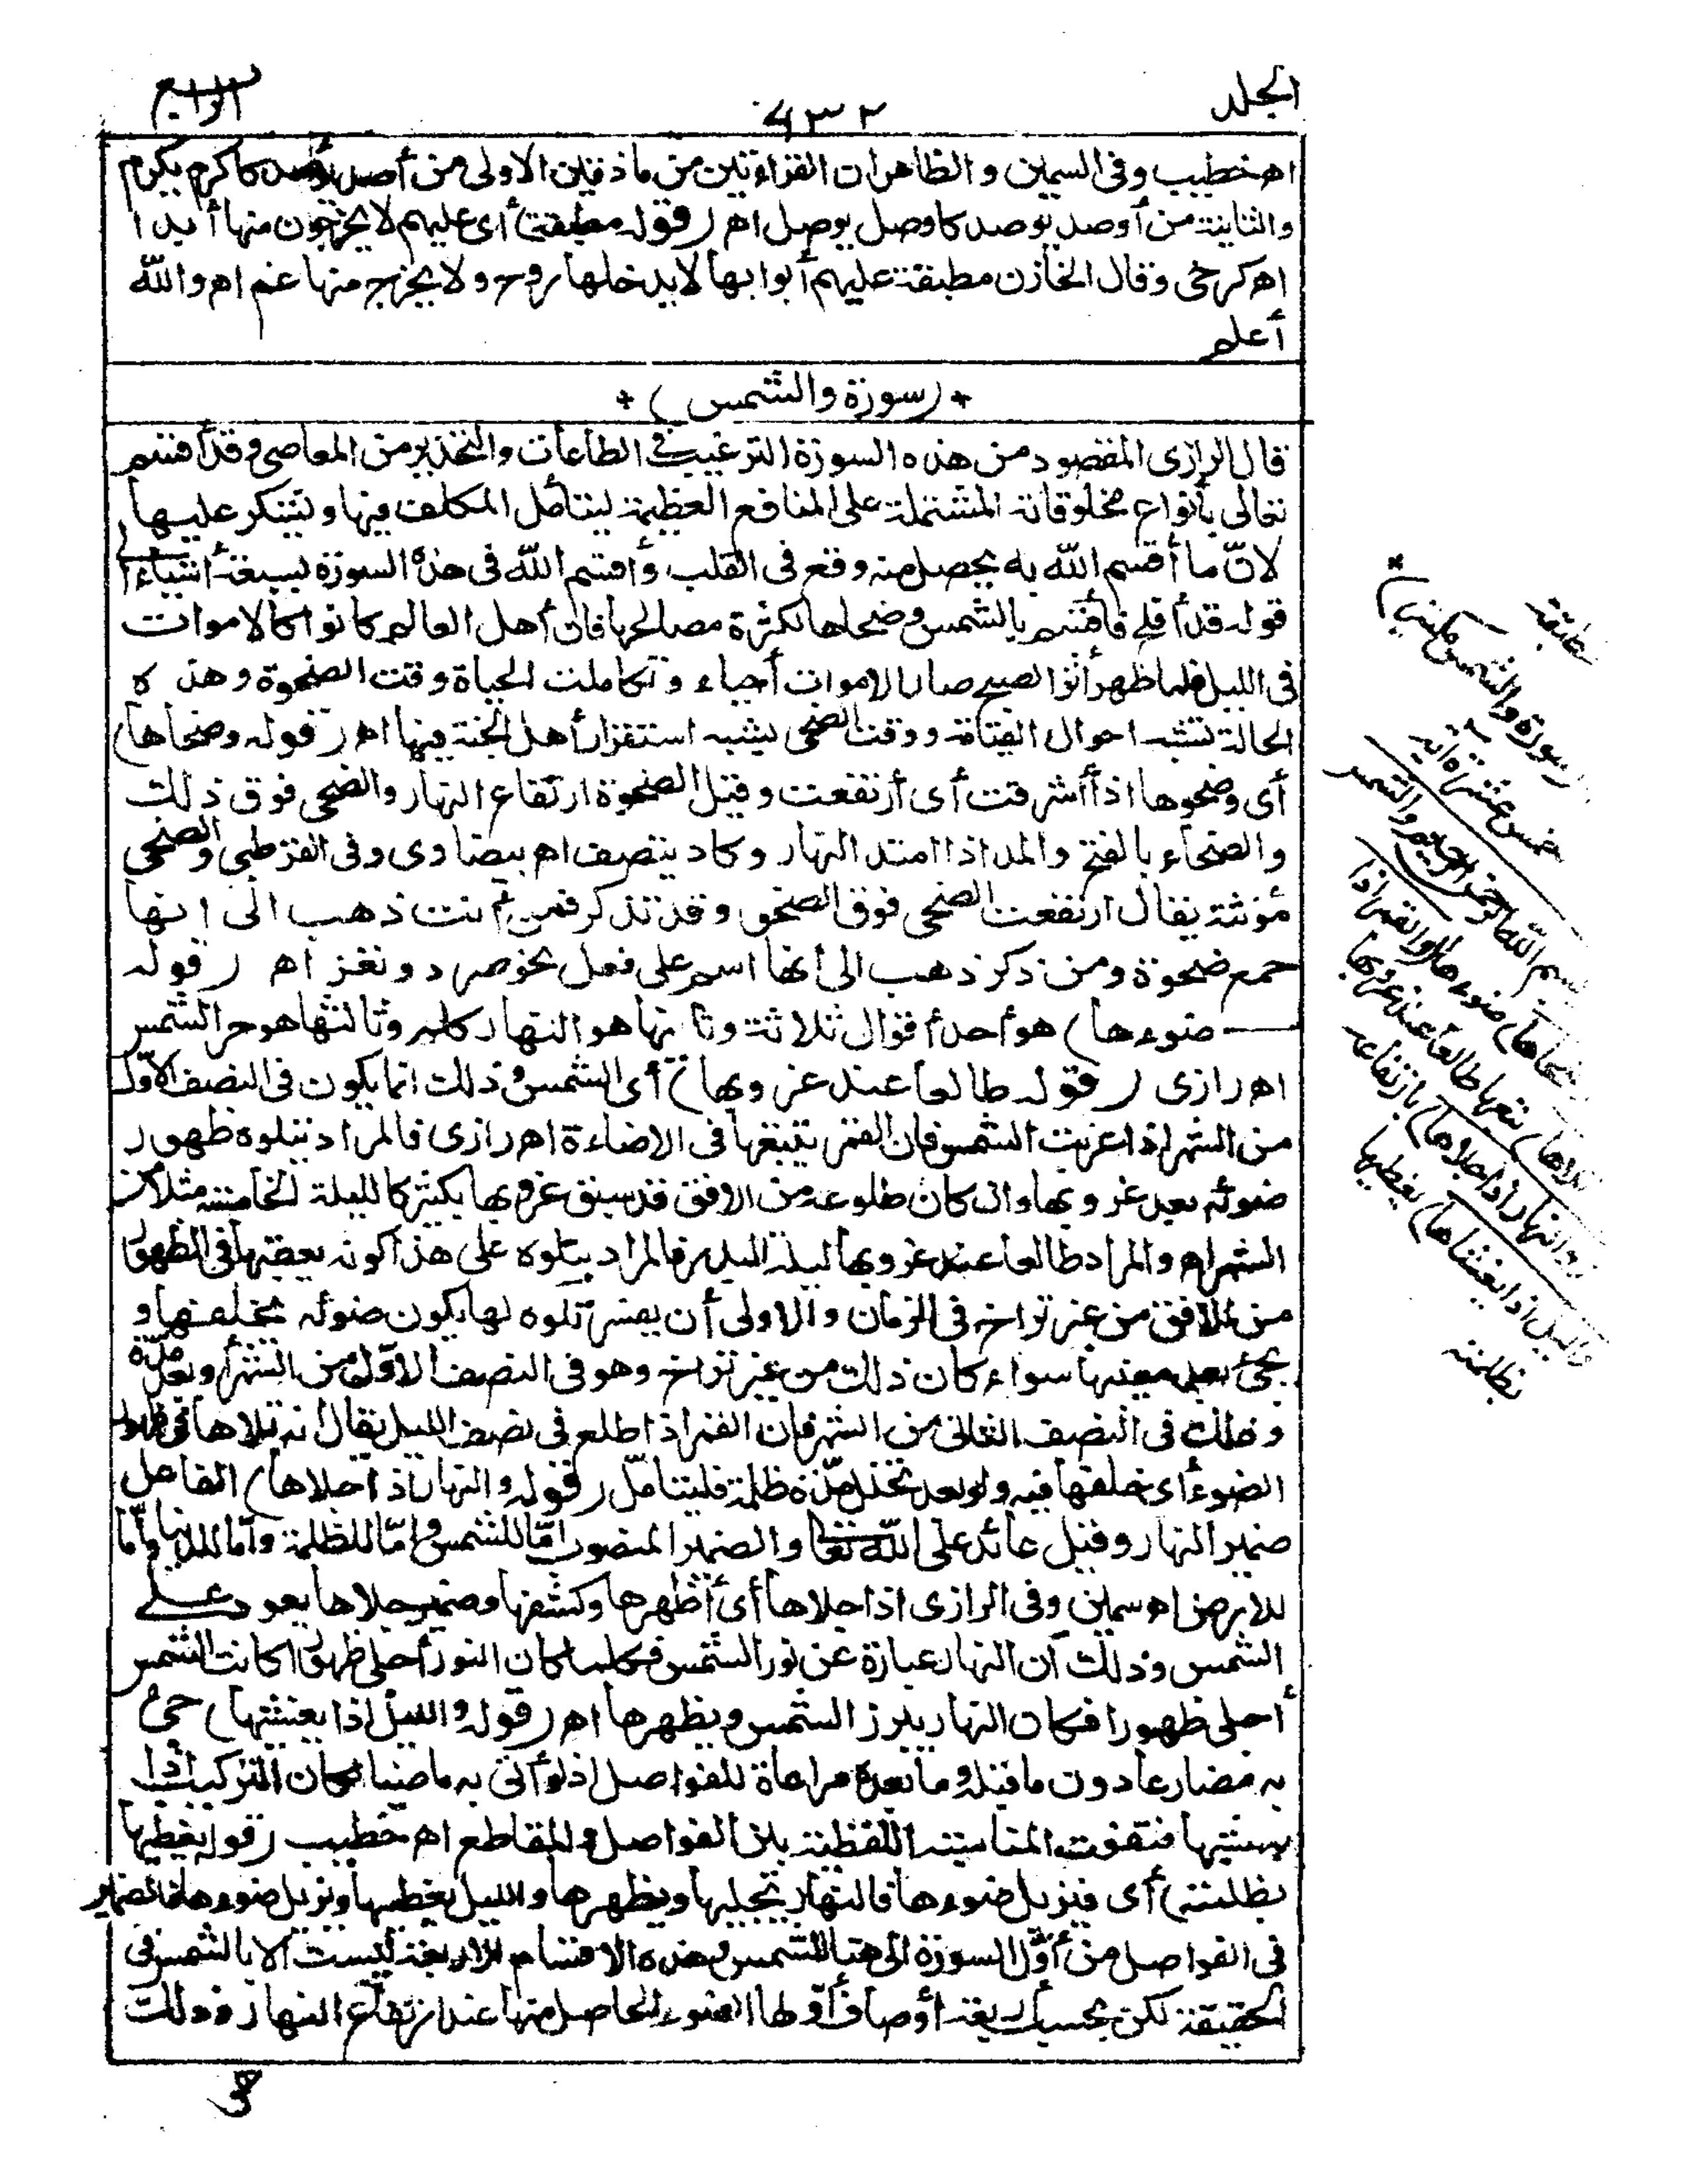 الجلد
٦٣٢
الرابع
اه خطيب وفى السمين والظاهر ان القراءتين من مادتين الاولى من أصد يؤصد كاكرم يكرم
والثانية من أوصد يوصد كاوصل يوصل اه (قوله مطبقة) أى عليهم لا يخرجون منها أبدا
اه كرخى وقال الخازن مطبقة عليهم أبوابها لا يدخلها روح ولا يخرج منها غم اه والله
أعلم
* (سورة والشمس) *
قال الرازى المقصود من هذه السورة الترغيب فى الطاعات والتحذير من المعاصى وقد أقسم
تعالى بأنواع مخلوقاته المشتملة على المنافع العظيمة ليتأمل المكلف فيها ويتشكر عليها
لانّ ما أقسم الله به يحصل منه وقع فى القلب وأقسم الله فى هذه السورة بسبعة أشياء الى
قوله قد أفلح فأقسم بالشمس وضحاها لكثرة مصالحها فان أهل العالم كانوا كالاموات
فى الليل فلما ظهر أثر الصبح صار الاموات أحياء وتكاملت الحياة وقت الضحوة وهذه
الحالة تشبه احوال القيامة ووقت الضحى يشبه استقرار أهل الجنة فيها اه (قوله وضحاها)
أى وضحوها اذا أشرقت أى أرتفعت وقيل الضحوة ارتفاع النهار والضحى فوق ذلك
والضحاء بالفتح والمد اذا امتد النهار وكاد ينتصف اه بيضاوى وفى القرطبى والضحى
مؤنثة يقال ارتفعت الضحى فوق الضحو وقد تذكر فمن أنث ذهب الى انها
جمع ضحوة ومن ذكر ذهب الى أنها اسم على فعل نحو صرد ونغر اه (قوله
ضوءها) هو أحد أقوال ثلاثة وثانيها هو النهار كله وثالثها هو حر الشمس
اه رازى (قوله طالعا عند غروبها) أى الشمس وذلك انما يكون فى النصف الاول
من الشهر اذا غربت الشمس فان القمر يتبعها فى الاضاءة اه رازى فالمراد بتلوه ظهور
ضوئه بعد غروبها وان كان طلوعه من الافق قد سبق غروبها بكثير كالليلة الخامسة مثلا من
الشهر اه والمراد طالعا عند غروبها ليلة البدر فالمراد بتلوه على هذا كونه يعقبها فى الظهور
من الافق من غير تراخ فى الزمان والاولى أن يفسر تلوه لها بكون ضوئه يخلفها و
يجئ بعد مغيبها سواء كان ذلك من غير تراخ وهو فى النصف الاول من الشهر أو بعد مدة
وذلك فى النصف الثانى من الشهر فان القمر اذا طلع فى نصف الليل يقال انه تلاها فى ظهور
الضوء أى خلفها فيه ولو بعد تخلل مدة ظلمة فليتأمل (قوله والنهار اذا جلاها) الفاعل
ضمير النهار وقيل عائد على الله تعالى والضمير المنصوب امّا للشمس وامّا للظلمة وامّا للدنيا وامّا
للارض اه سمين وفى الرازى اذا جلاها أى أظهرها وكشفها وضمير جلاها يعود على
الشمس وذلك أن النهار عبارة عن نور الشمس فكلما كان النور أجلى ظهورا كانت الشمس
أجلى ظهورا فكان النهار يبرز الشمس ويظهرها اه (قوله والليل اذا يغشيها) جئ
به مضارعا دون ما قبله وما بعده مراعاة للفواصل اذ لو أتى به ماضيا لكان التركيب اذا
غشيها فتفوت المناسبة اللفظية بين الفواصل والمقاطع اه خطيب (قوله يغطيها
بظلمته) أى فيزيل ضوءها فالنهار يجليها ويظهرها والليل يغطيها ويزيل ضوءها فالضمير
فى الفواصل من أول السورة الى هنا للشمس وهذه الاقسام الاربعة ليست الا بالشمس فى
الحقيقة لكن بحسب أربعة أوصاف أولها الضوء الحاصل منها عند ارتفاع النهار وذلك
مطبقة
(سورة والشمس مكية)
خمس عشرة آية
بسم الله الرحمن الرحيم والشمس
وضحاها) ضوءها (والقمر اذا
تلاها) تبعها طالعا عند غروبها
(والنهار اذا جلاها) بارتفاعه
(والليل اذا يغشاها) يغطيها
بظلمته